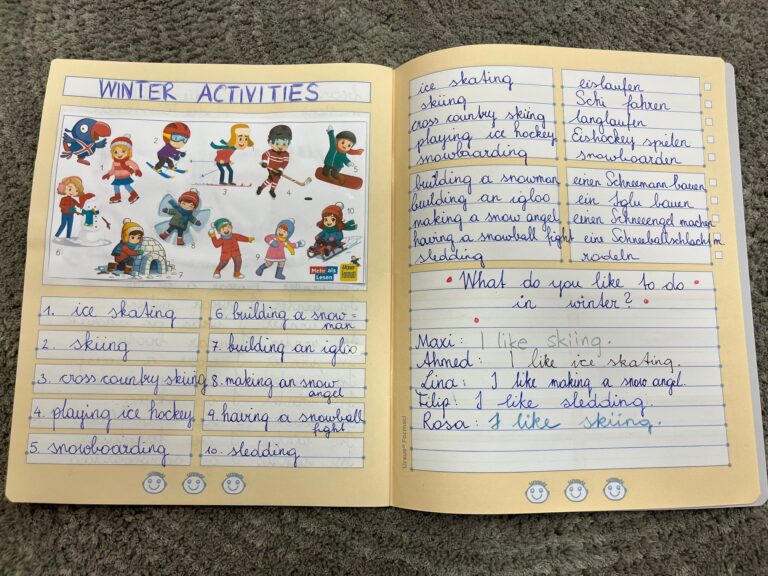 WINTER ACTIVITIES
3
4
5
6
7
8
9
10
Mehr als
Lesen
1. ice skating
2. skiing
3. cross country skiing
4. playing ice hockey
5. snowboarding
6. building a snow=
man
7. building an igloo
8. making an snow
angel
9. having a snowball
fight
10. sledding
ice skating
skiing
cross country skiing
playing ice hockey
snowboarding
eislaufen
Schi fahren
langlaufen
Eishockey spielen
snowboarden
building a snowman
building an igloo
making a snow angel
having a snowball fight
sledding
einen Schneemann bauen
ein Iglu bauen
einen Schneeengel machen
eine Schneeballschlacht m.
rodeln
What do you like to do
in winter?
Maxi: I like skiing.
Ahmed: I like ice skating.
Lina: I like making a snow angel.
Filip: I like sledding.
Rosa: I like skiing.
Ursus® Formati